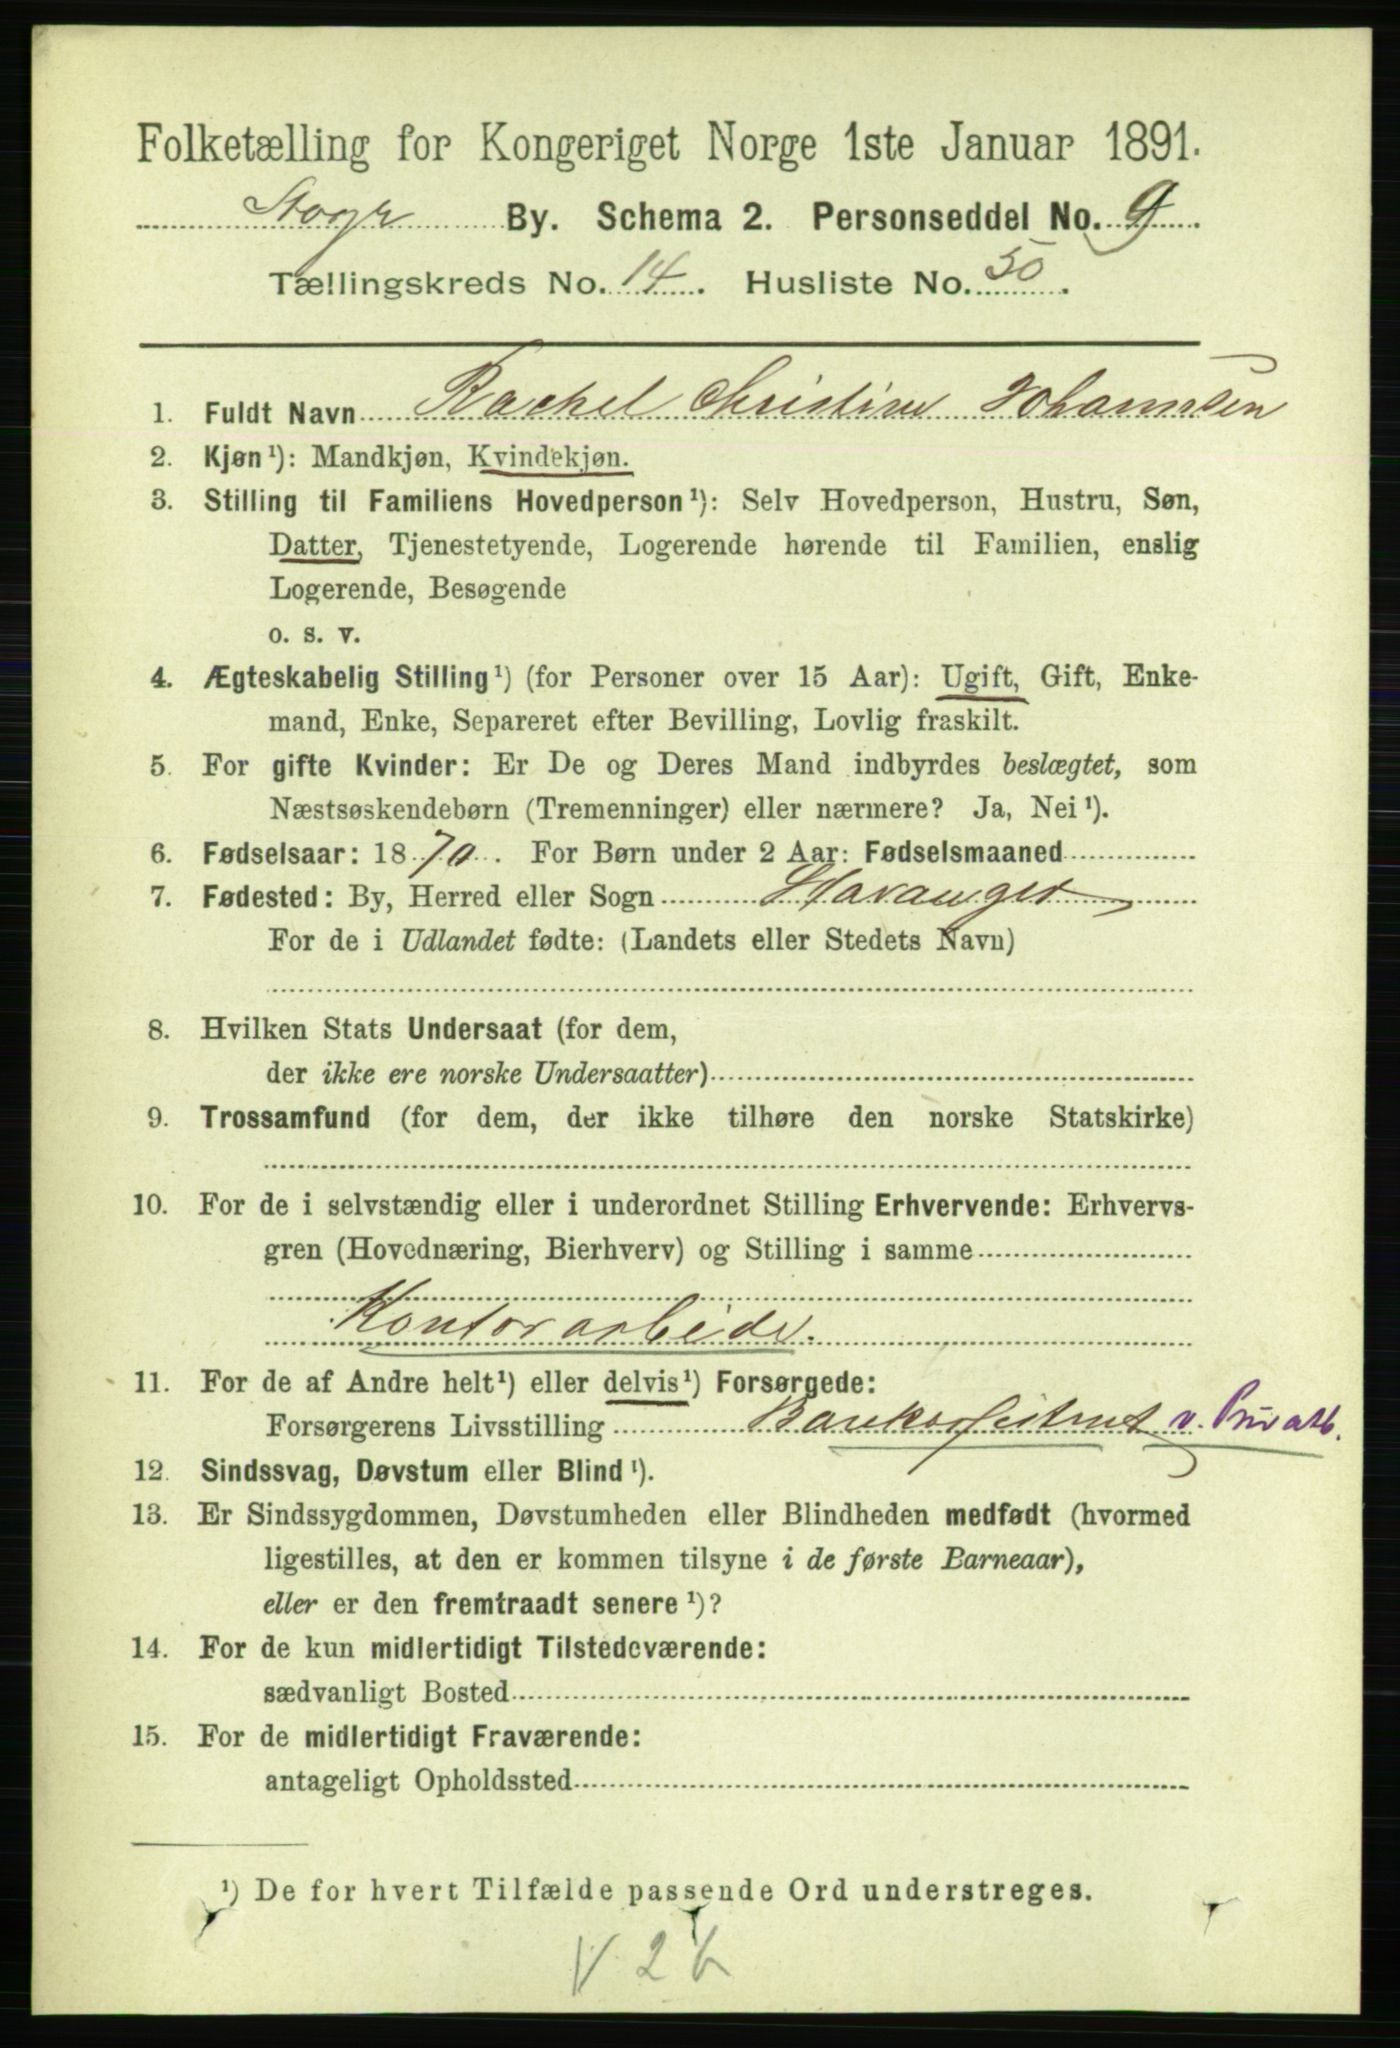 Folketælling for Kongeriget Norge 1ste Januar 1891.
Stavgr By. Schema 2. Personseddel No. 9
Tællingskreds No. 14. Husliste No. 50.
1. Fuldt Navn Rachel Christine Johannsen
2. Kjøn¹): Mandkjøn, Kvindekjøn.
3. Stilling til Familiens Hovedperson¹): Selv Hovedperson, Hustru, Søn,
Datter, Tjenestetyende, Logerende hørende til Familien, enslig
Logerende, Besøgende
o. s. v.
4. Ægteskabelig Stilling¹) (for Personer over 15 Aar): Ugift, Gift, Enke-
mand, Enke, Separeret efter Bevilling, Lovlig fraskilt.
5. For gifte Kvinder: Er De og Deres Mand indbyrdes beslægtet, som
Næstsøskendebørn (Tremenninger) eller nærmere? Ja, Nei¹).
6. Fødselsaar: 1870. For Børn under 2 Aar: Fødselsmaaned
7. Fødested: By, Herred eller Sogn Stavanger
For de i Udlandet fødte: (Landets eller Stedets Navn)
8. Hvilken Stats Undersaat (for dem,
der ikke ere norske Undersaatter)
9. Trossamfund (for dem, der ikke tilhøre den norske Statskirke)
10. For de i selvstændig eller i underordnet Stilling Erhvervende: Erhvervs-
gren (Hovednæring, Bierhverv) og Stilling i samme
Kontorarbeide.
11. For de af Andre helt¹) eller delvis¹) Forsørgede:
Forsørgerens Livsstilling v. Privatb.
12. Sindssvag, Døvstum eller Blind¹).
13. Er Sindssygdommen, Døvstumheden eller Blindheden medfødt (hvormed
ligestilles, at den er kommen tilsyne i de første Barneaar),
eller er den fremtraadt senere¹)?
14. For de kun midlertidigt Tilstedeværende:
sædvanligt Bosted
15. For de midlertidigt Fraværende:
antageligt Opholdssted
¹) De for hvert Tilfælde passende Ord understreges.
V 2 b